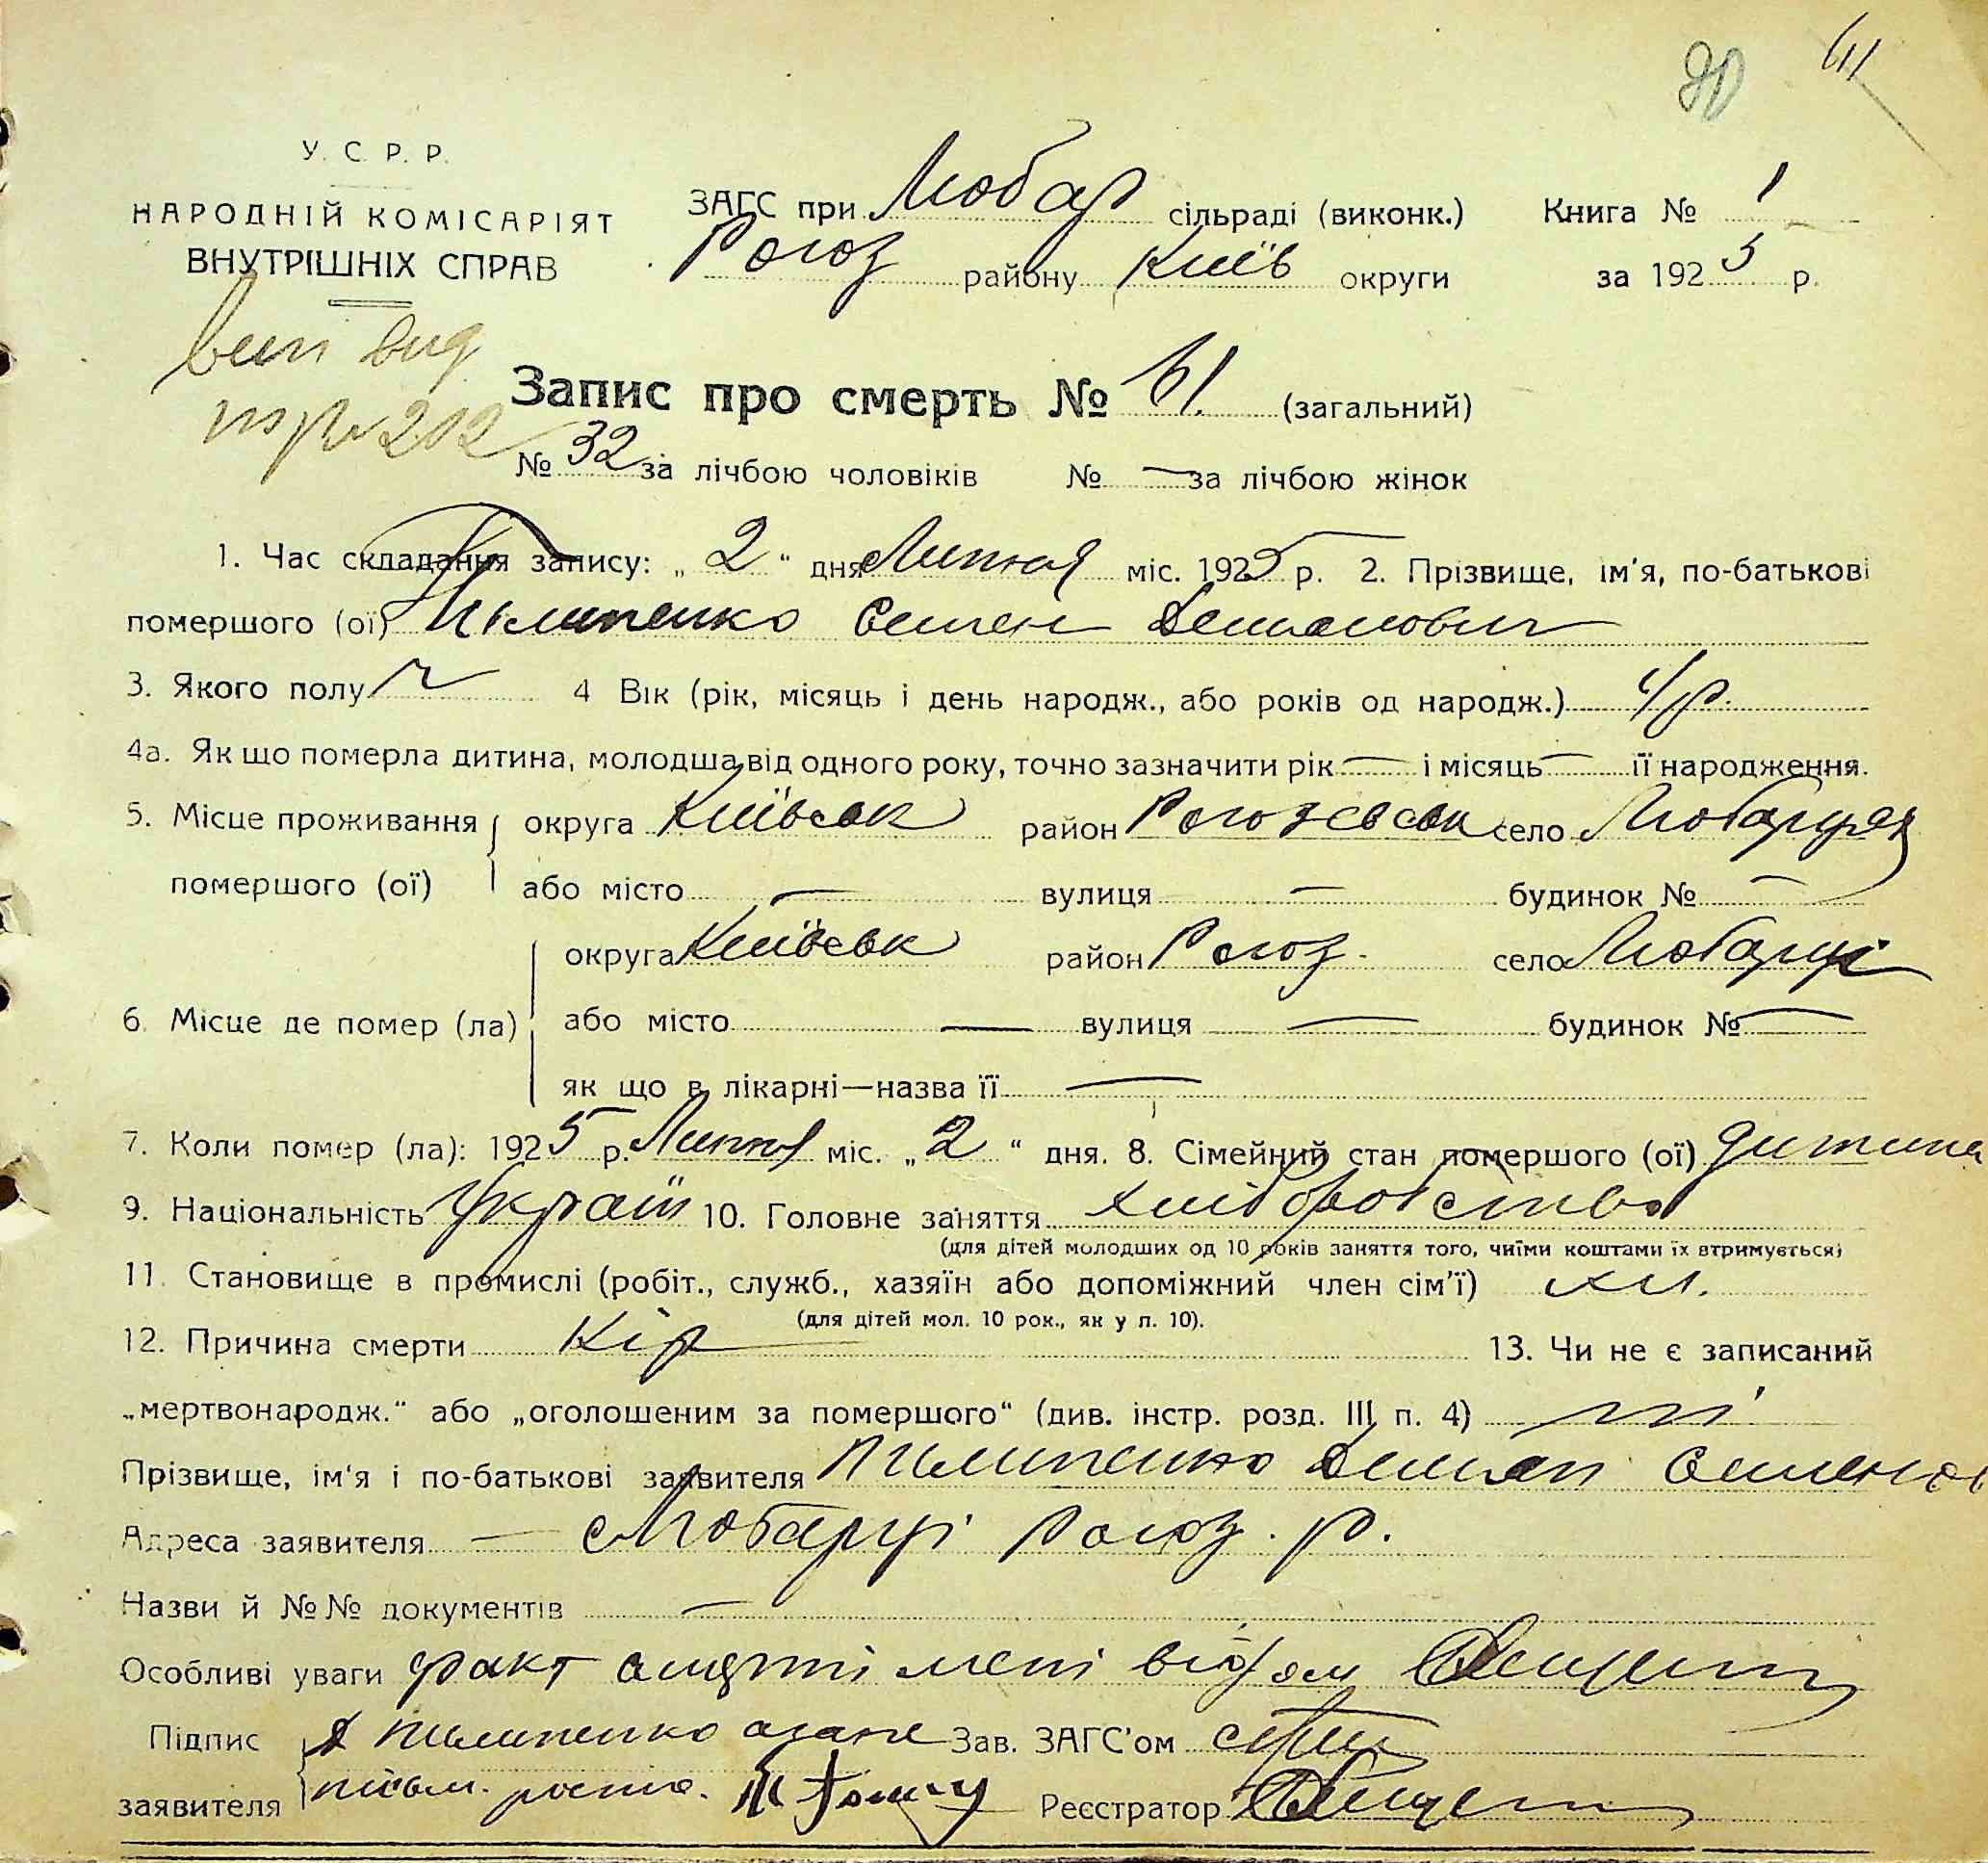 90 61
У. С. Р. Р.
НАРОДНІЙ КОМІСАРІЯТ
ВНУТРІШНІХ СПРАВ
ЗАГС при Любар сільраді (виконк.) Книга № 1
Рогоз району Київ округи за 1925 р.
вип вид
№ 202
Запис про смерть № 61. (загальний)
№ 32 за лічбою чоловіків № — за лічбою жінок
1. Час складання запису: „ 2 “ дня Лютня міс. 1925 р. 2. Прізвище, ім'я, по-батькові
помершого (ої) Пилипенко Семен Демянович
3. Якого полу ч 4 Вік (рік, місяць і день народж., або років од народж.) 4 р.
4а. Як що померла дитина, молодша від одного року, точно зазначити рік — і місяць — її народження.
5. Місце проживання округа Київськ район Рогозівськ село Любарцях
помершого (ої) або місто — вулиця — будинок № —
округа Київськ район Рогоз. село Любарці
6. Місце де помер (ла) або місто — вулиця — будинок № —
як що в лікарні—назва її —
7. Коли помер (ла): 1925 р. Лютня міс. „ 2 “ дня. 8. Сімейний стан помершого (ої) дитина
9. Національність Україн 10. Головне заняття хліборобство
(для дітей молодших од 10 років заняття того, чиїми коштами їх втримується)
11. Становище в промислі (робіт., служб., хазяїн або допоміжний член сім'ї) хл.
(для дітей мол. 10 рок., як у п. 10).
12. Причина смерти Кір 13. Чи не є записаний
„мертвонародж.“ або „оголошеним за помершого“ (див. інстр. розд. III п. 4) ні
Прізвище, ім'я і по-батькові заявителя Пилипенко Демян Семенов
Адреса заявителя — с Любарці Рогоз. р.
Назви й №№ документів —
Особливі уваги факт смерти мені відом
Підпис Д Пилипенко Зав. ЗАГС'ом
заявителя Реєстратор